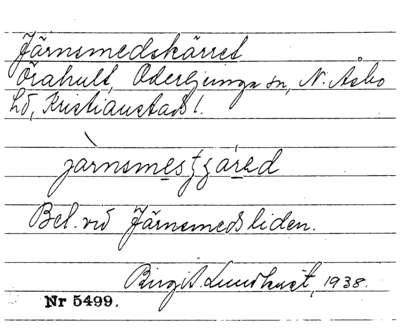 Järnsmedskärret
Örahult, Oderljunga sn, N. Åsbo
hd, Kristianstads l.
jàrnsmestʒárəd
Bel. vid Järnsmedsliden.
Birgit Lundkvist, 1938.
Nr 5499.